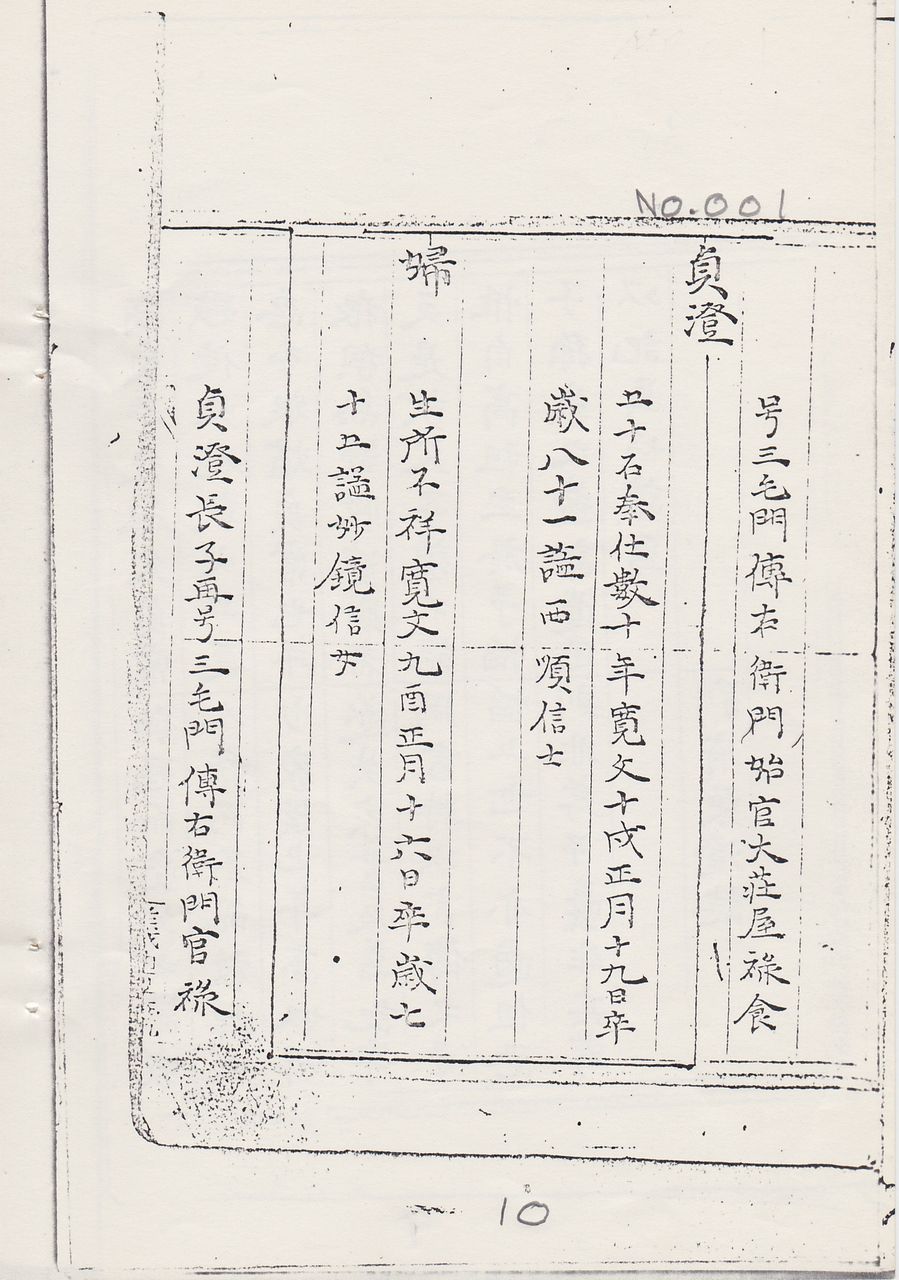 No.001
貞澄
号三毛門傳右衛門始官大莊屋祿食
五十石奉仕數十年寛文十戌正月十九日卒
歳八十一謚西順信士
婦
生所不祥寛文九酉正月十六日卒歳七
十五謚妙鏡信女
貞澄長子再号三毛門傳右衛門官祿
10